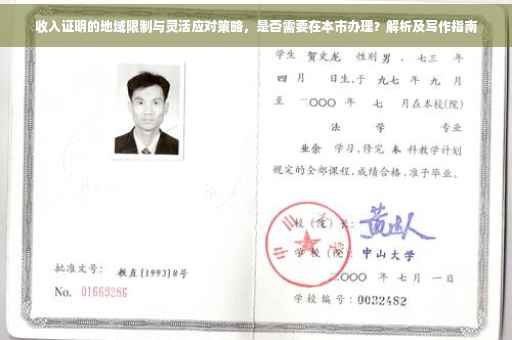 收入证明的地域限制与灵活应对策略，是否需要在本市办理？解析及写作指南
学生 贺文龙 性别 男，七三 年
四 月 日生，于 九七 年 九 月
至 二〇〇〇 年 七 月在本校(院)
法 学 专业
业余 学习，修完 本 科教学计划
规定的全部课程，成绩合格，准予毕业。
校（院）长：
学 校（院）： 中山大学
二〇〇〇 年 七 月 一 日
学校编号：0032482
批准文号： 教直(1993)8号
No. 01669286